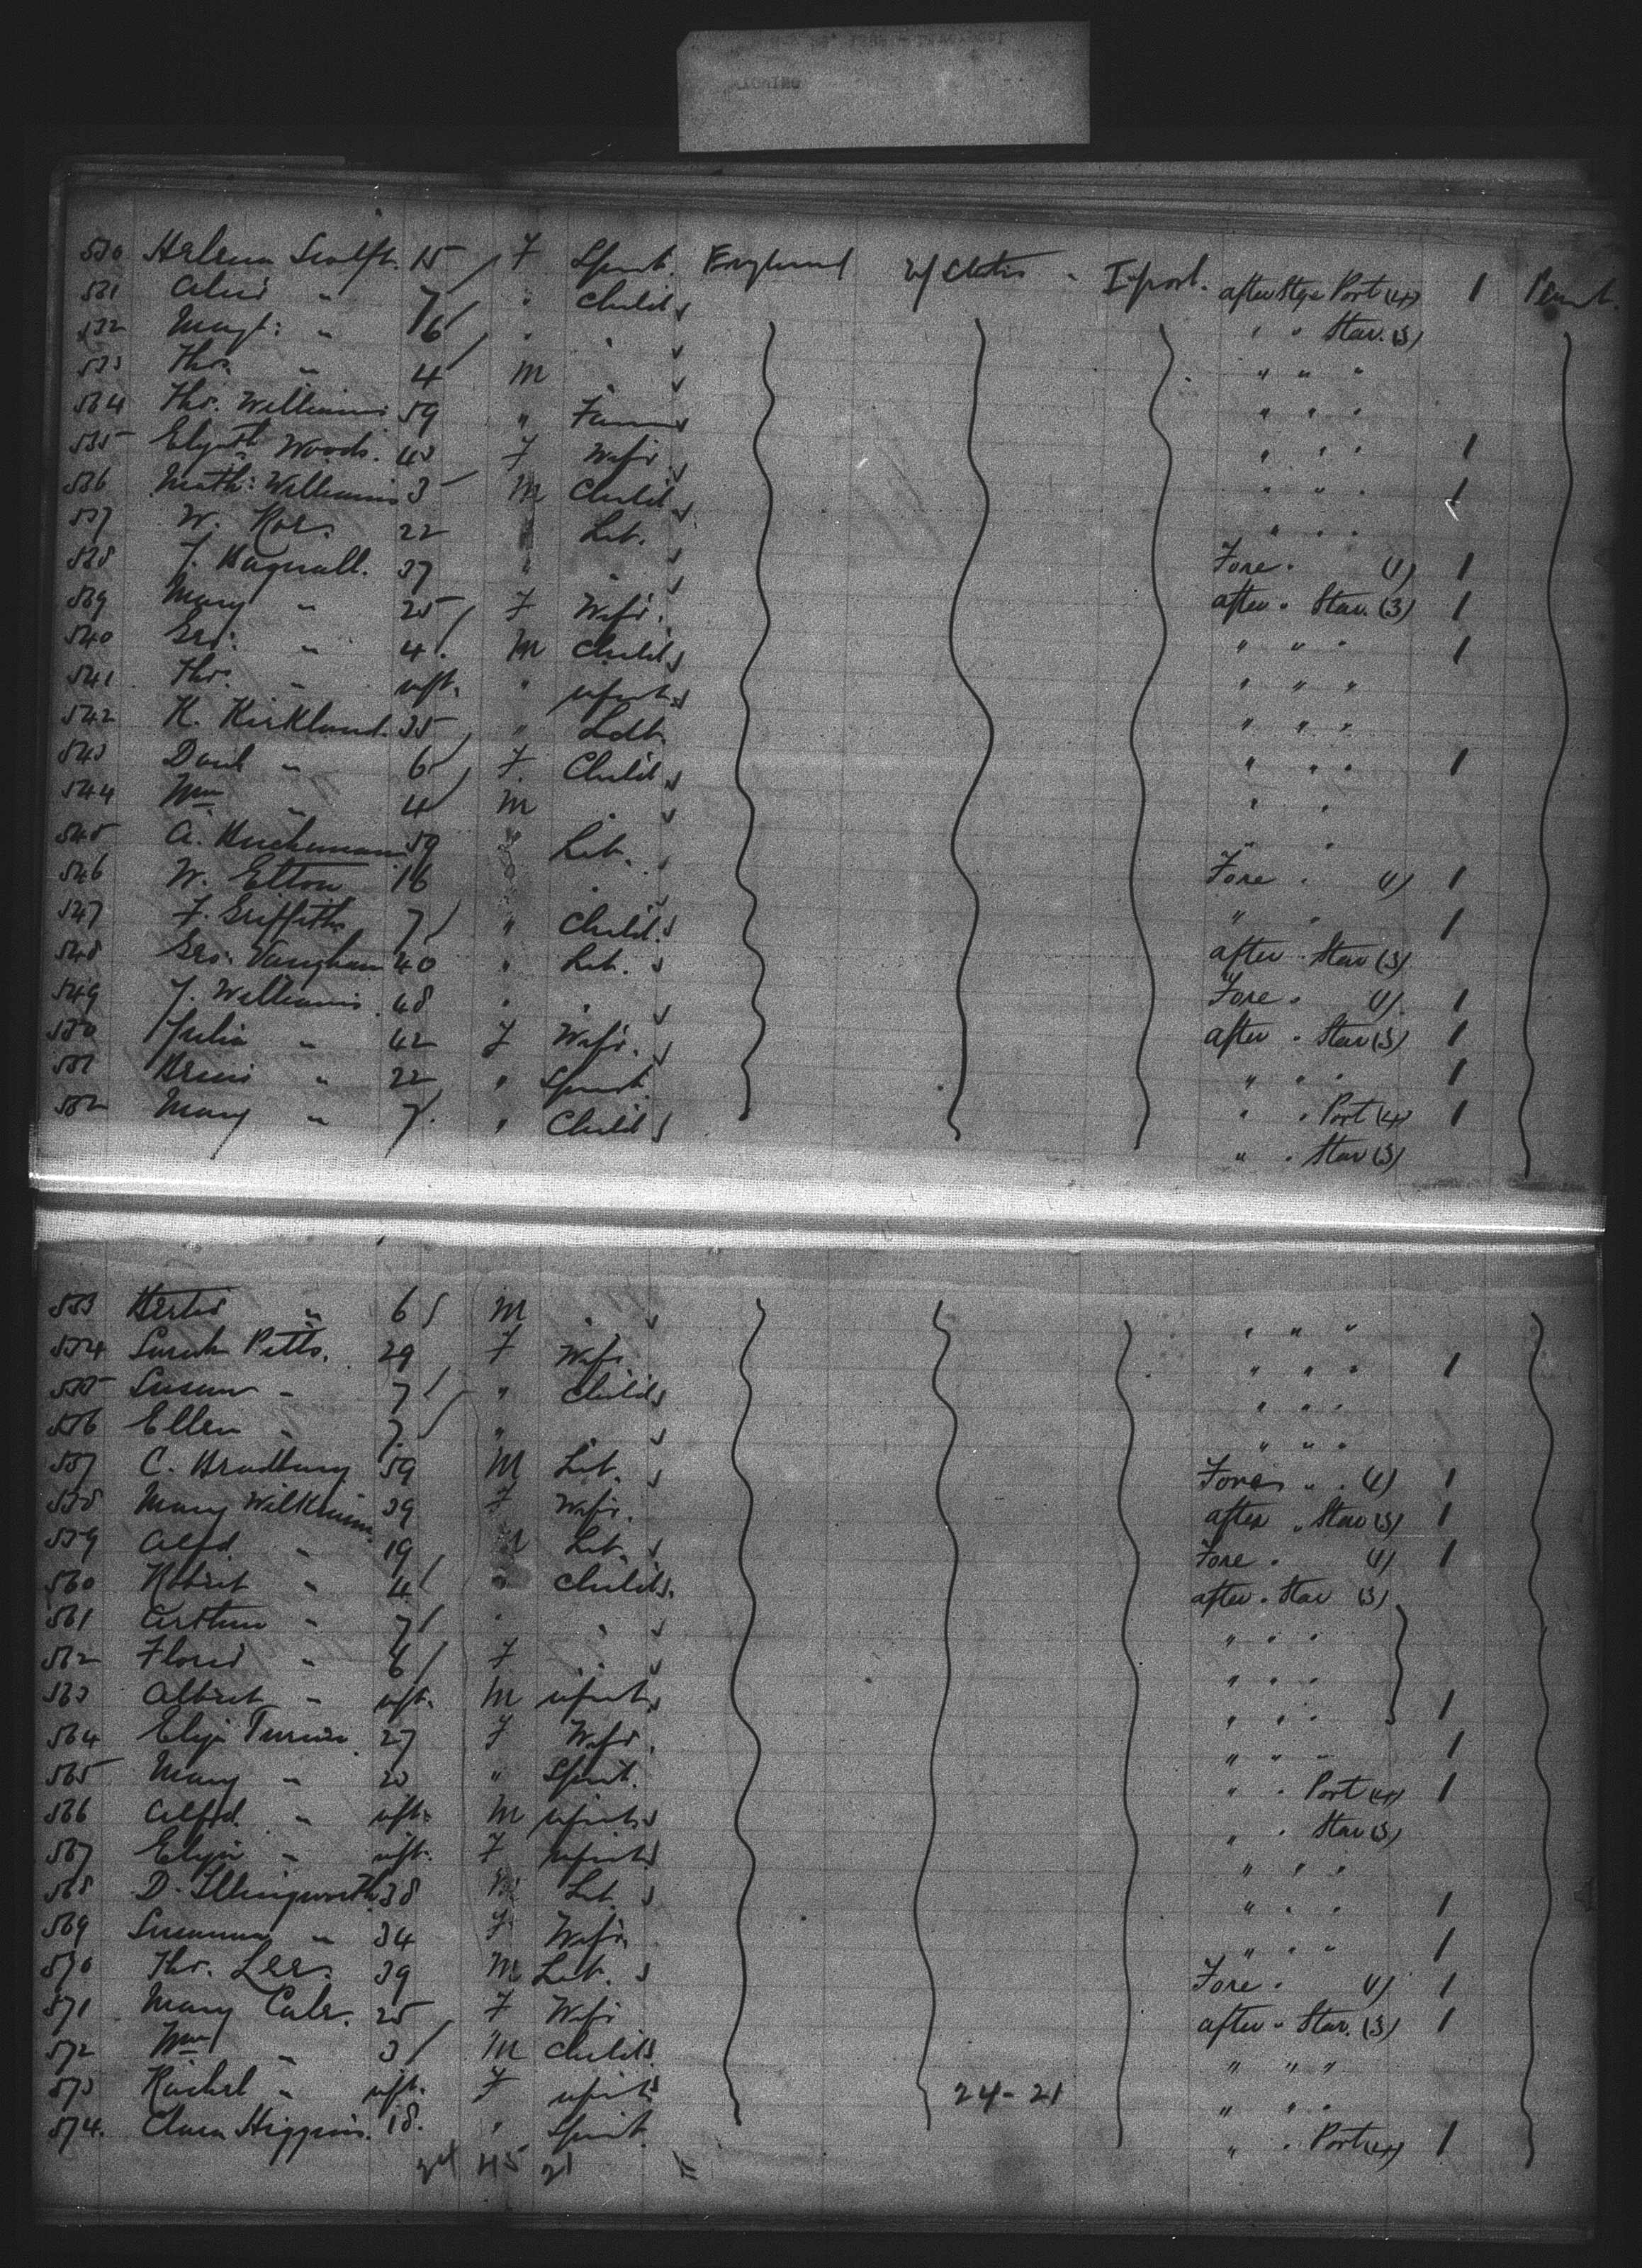 530 Helena Scolft. 15 F Spinst. England U/States - I-port. after Stge Port (4) 1 Perm't.
531 Alice " 7 " Child " " Star. (3)
532 Magt: " 6 " " " " "
533 Thos. " 4 M " " " "
534 Thos. Williams 59 " Farm " " " 1
535 Elizth Woods. 43 F Wife " " " 1
536 Math: Williams 3 M Child " " "
537 W. Roe. 22 Lab. Fore " (1) 1
538 J. Bagnall. 37 " " after " Star. (3) 1
539 Mary " 25 F Wife. " " " 1
540 Geo: " 4 M Child " " "
541 Thos. " inft. " infant " " "
542 H. Kirkland. 35 " " " " 1
543 Danl " 6 F. Child " "
544 Wm " 4 M " " "
545 A. Buchanan 59 " Lab. Fore " (1) 1
546 W. Elton 16 " " " 1
547 F. Griffiths 7 " Child. after " Star (3)
548 Geo: Vaughan 40 " Lab. Fore " (1) 1
549 J. Williams 48 " " after " Star (3) 1
550 Julia " 42 F Wife. " " " 1
551 " 22 " Spinst. " " Port (4) 1
552 Mary " 7. " Child " " Star (3)
553 " 6 M " " " "
554 Sarah Pitts. 29 F Wife " " " 1
555 Susan " 7 " Child " " "
556 Ellen " 7 " " " " "
557 C. Bradbury 59 M Lab. Fore " " (1) 1
558 Mary Wilkinson 39 F Wife. after " Star (3) 1
559 Alfd. " 19 M Lab. Fore " (1) 1
560 Robert " 4 " Child. after " Star (3)
561 Arthur " 7 " " " " "
562 Flored " 6 F " " " "
563 Albert " inft. M infant " " " 1
564 Eliza Turner 27 F Wife. " " " 1
565 Mary " 20 " Spinst. " " Port (4) 1
566 Alfd. " inft. M infant " " Star (3)
567 Eliza " inft. F infant " " "
568 D. Illingworth 38 M Lab. " " " 1
569 Susanna " 34 F Wife " " " 1
570 Thos. Lee. 39 M Lab. Fore " (1) 1
571 Mary Cale. 25 F Wife after " Star. (3) 1
572 Wm " 3 M Child. " " "
573 Rachel " inft. F infant 24-21 " " "
574. Clara Higgins. 18. " Spinst. " " Port (4) 1
24 45 21